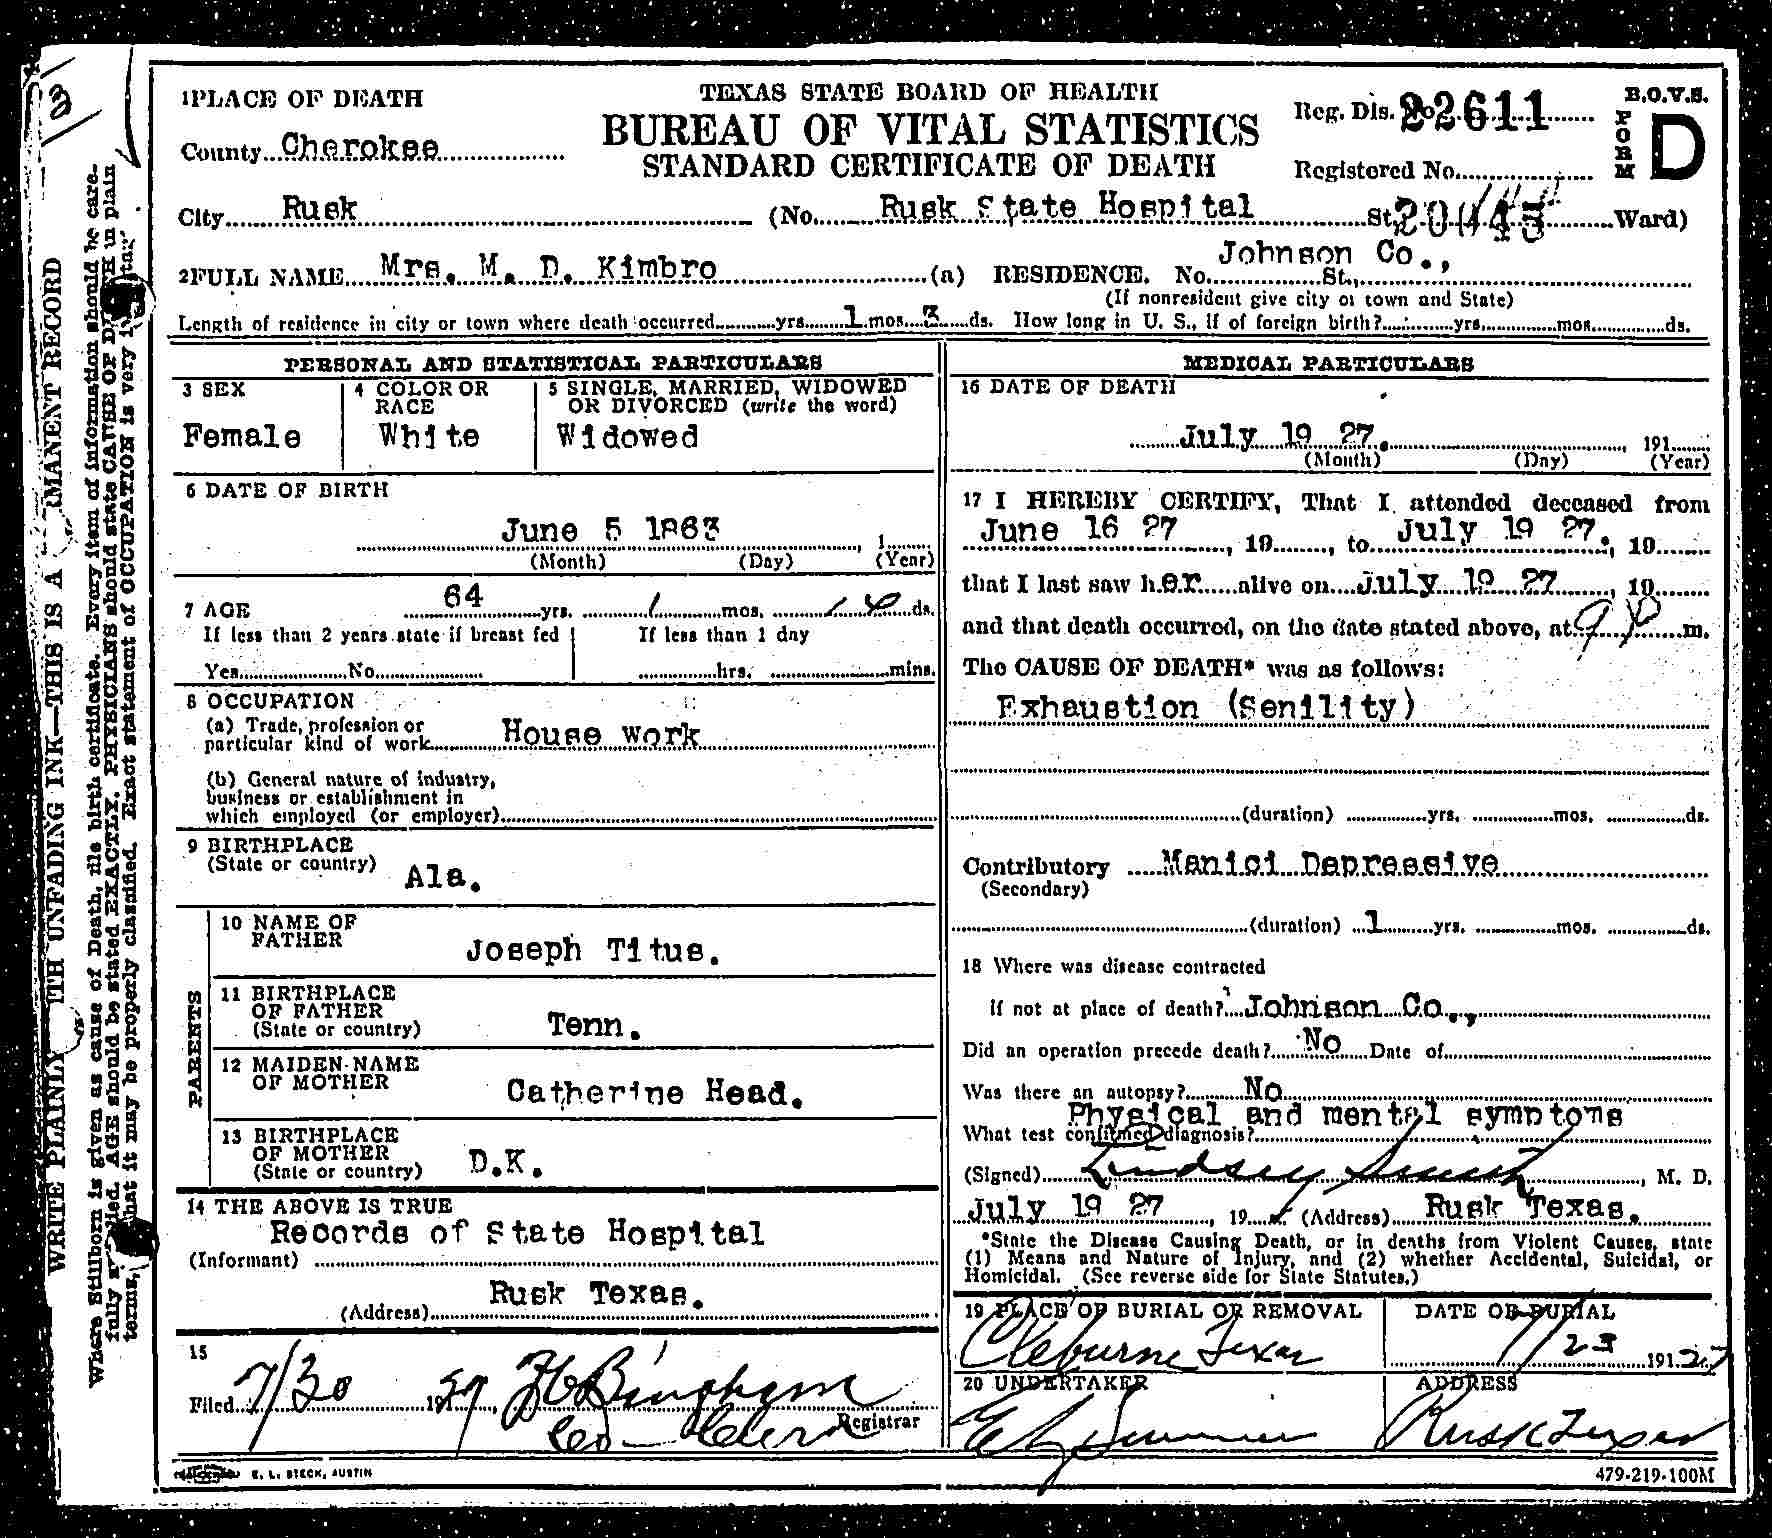 1 PLACE OF DEATH
TEXAS STATE BOARD OF HEALTH
BUREAU OF VITAL STATISTICS
STANDARD CERTIFICATE OF DEATH
Reg. Dis. No. 22611
Registered No.
B.O.V.S.
FORM D
County Cherokee
City Rusk (No. Rusk State Hospital St. Ward)
2 FULL NAME Mrs. M. D. Kimbro (a) RESIDENCE. No. Johnson Co., St.,
(If nonresident give city or town and State)
Length of residence in city or town where death occurred yrs. 1 mos. 3 ds. How long in U. S., if of foreign birth? yrs. mos. ds.
PERSONAL AND STATISTICAL PARTICULARS
3 SEX
Female
4 COLOR OR RACE
White
5 SINGLE, MARRIED, WIDOWED
OR DIVORCED (write the word)
Widowed
6 DATE OF BIRTH
June 5 1863 , 1
(Month) (Day) (Year)
7 AGE 64 yrs. 1 mos. 14 ds.
If less than 2 years state if breast fed
Yes No
If less than 1 day
hrs. mins.
8 OCCUPATION
(a) Trade, profession or
particular kind of work House work
(b) General nature of industry,
business or establishment in
which employed (or employer)
9 BIRTHPLACE
(State or country) Ala.
PARENTS
10 NAME OF
FATHER Joseph Titus.
11 BIRTHPLACE
OF FATHER
(State or country) Tenn.
12 MAIDEN NAME
OF MOTHER Catherine Head.
13 BIRTHPLACE
OF MOTHER
(State or country) D.K.
14 THE ABOVE IS TRUE
Records of State Hospital
(Informant)
(Address) Rusk Texas.
15
Filed 7/30 1927, Bingham
Co Clerk Registrar
MEDICAL PARTICULARS
16 DATE OF DEATH
July 19 27. , 191
(Month) (Day) (Year)
17 I HEREBY CERTIFY, That I attended deceased from
June 16 27 , 19 , to July 19 27. , 19
that I last saw her alive on July 19 27 , 19
and that death occurred, on the date stated above, at 9 P m.
The CAUSE OF DEATH* was as follows:
Exhaustion (Senility)
(duration) yrs. mos. ds.
Contributory Manici Depressive
(Secondary)
(duration) 1 yrs. mos. ds.
18 Where was disease contracted
if not at place of death? Johnson Co.,
Did an operation precede death? No Date of
Was there an autopsy? No
Physical and mental symptoms
What test confirmed diagnosis?
(Signed) Lindsey Smith, M. D.
July 19 27 , 19 (Address) Rusk Texas.
*State the Disease Causing Death, or in deaths from Violent Causes, state
(1) Means and Nature of Injury, and (2) whether Accidental, Suicidal, or
Homicidal. (See reverse side for State Statutes.)
19 PLACE OF BURIAL OR REMOVAL
Cleburne Texas
DATE OF BURIAL
7/23 1927
20 UNDERTAKER
ADDRESS
Rusk Texas
E. L. STECK, AUSTIN
479-219-100M
WRITE PLAINLY WITH UNFADING INK—THIS IS A PERMANENT RECORD
Where Stillborn is given as cause of Death, file birth certificate. Every item of information should be care-
fully supplied. AGE should be stated EXACTLY. PHYSICIANS should state CAUSE OF DEATH in plain
terms, that it may be properly classified. Exact statement of OCCUPATION is very